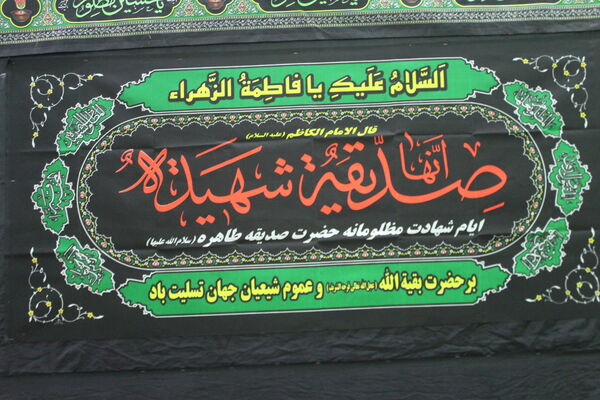 السَّلامُ عَلَيكِ يا فاطِمَةُ الزَّهراء
قال الامام الكاظم (عليه السلام)
اِنَّها صِدّيقَةٌ شَهيدَةٌ
ایام شهادت مظلومانه حضرت صدیقه طاهره (سلام الله علیها)
بر حضرت بقیة الله (عجل الله تعالی فرجه الشریف) و عموم شیعیان جهان تسلیت باد